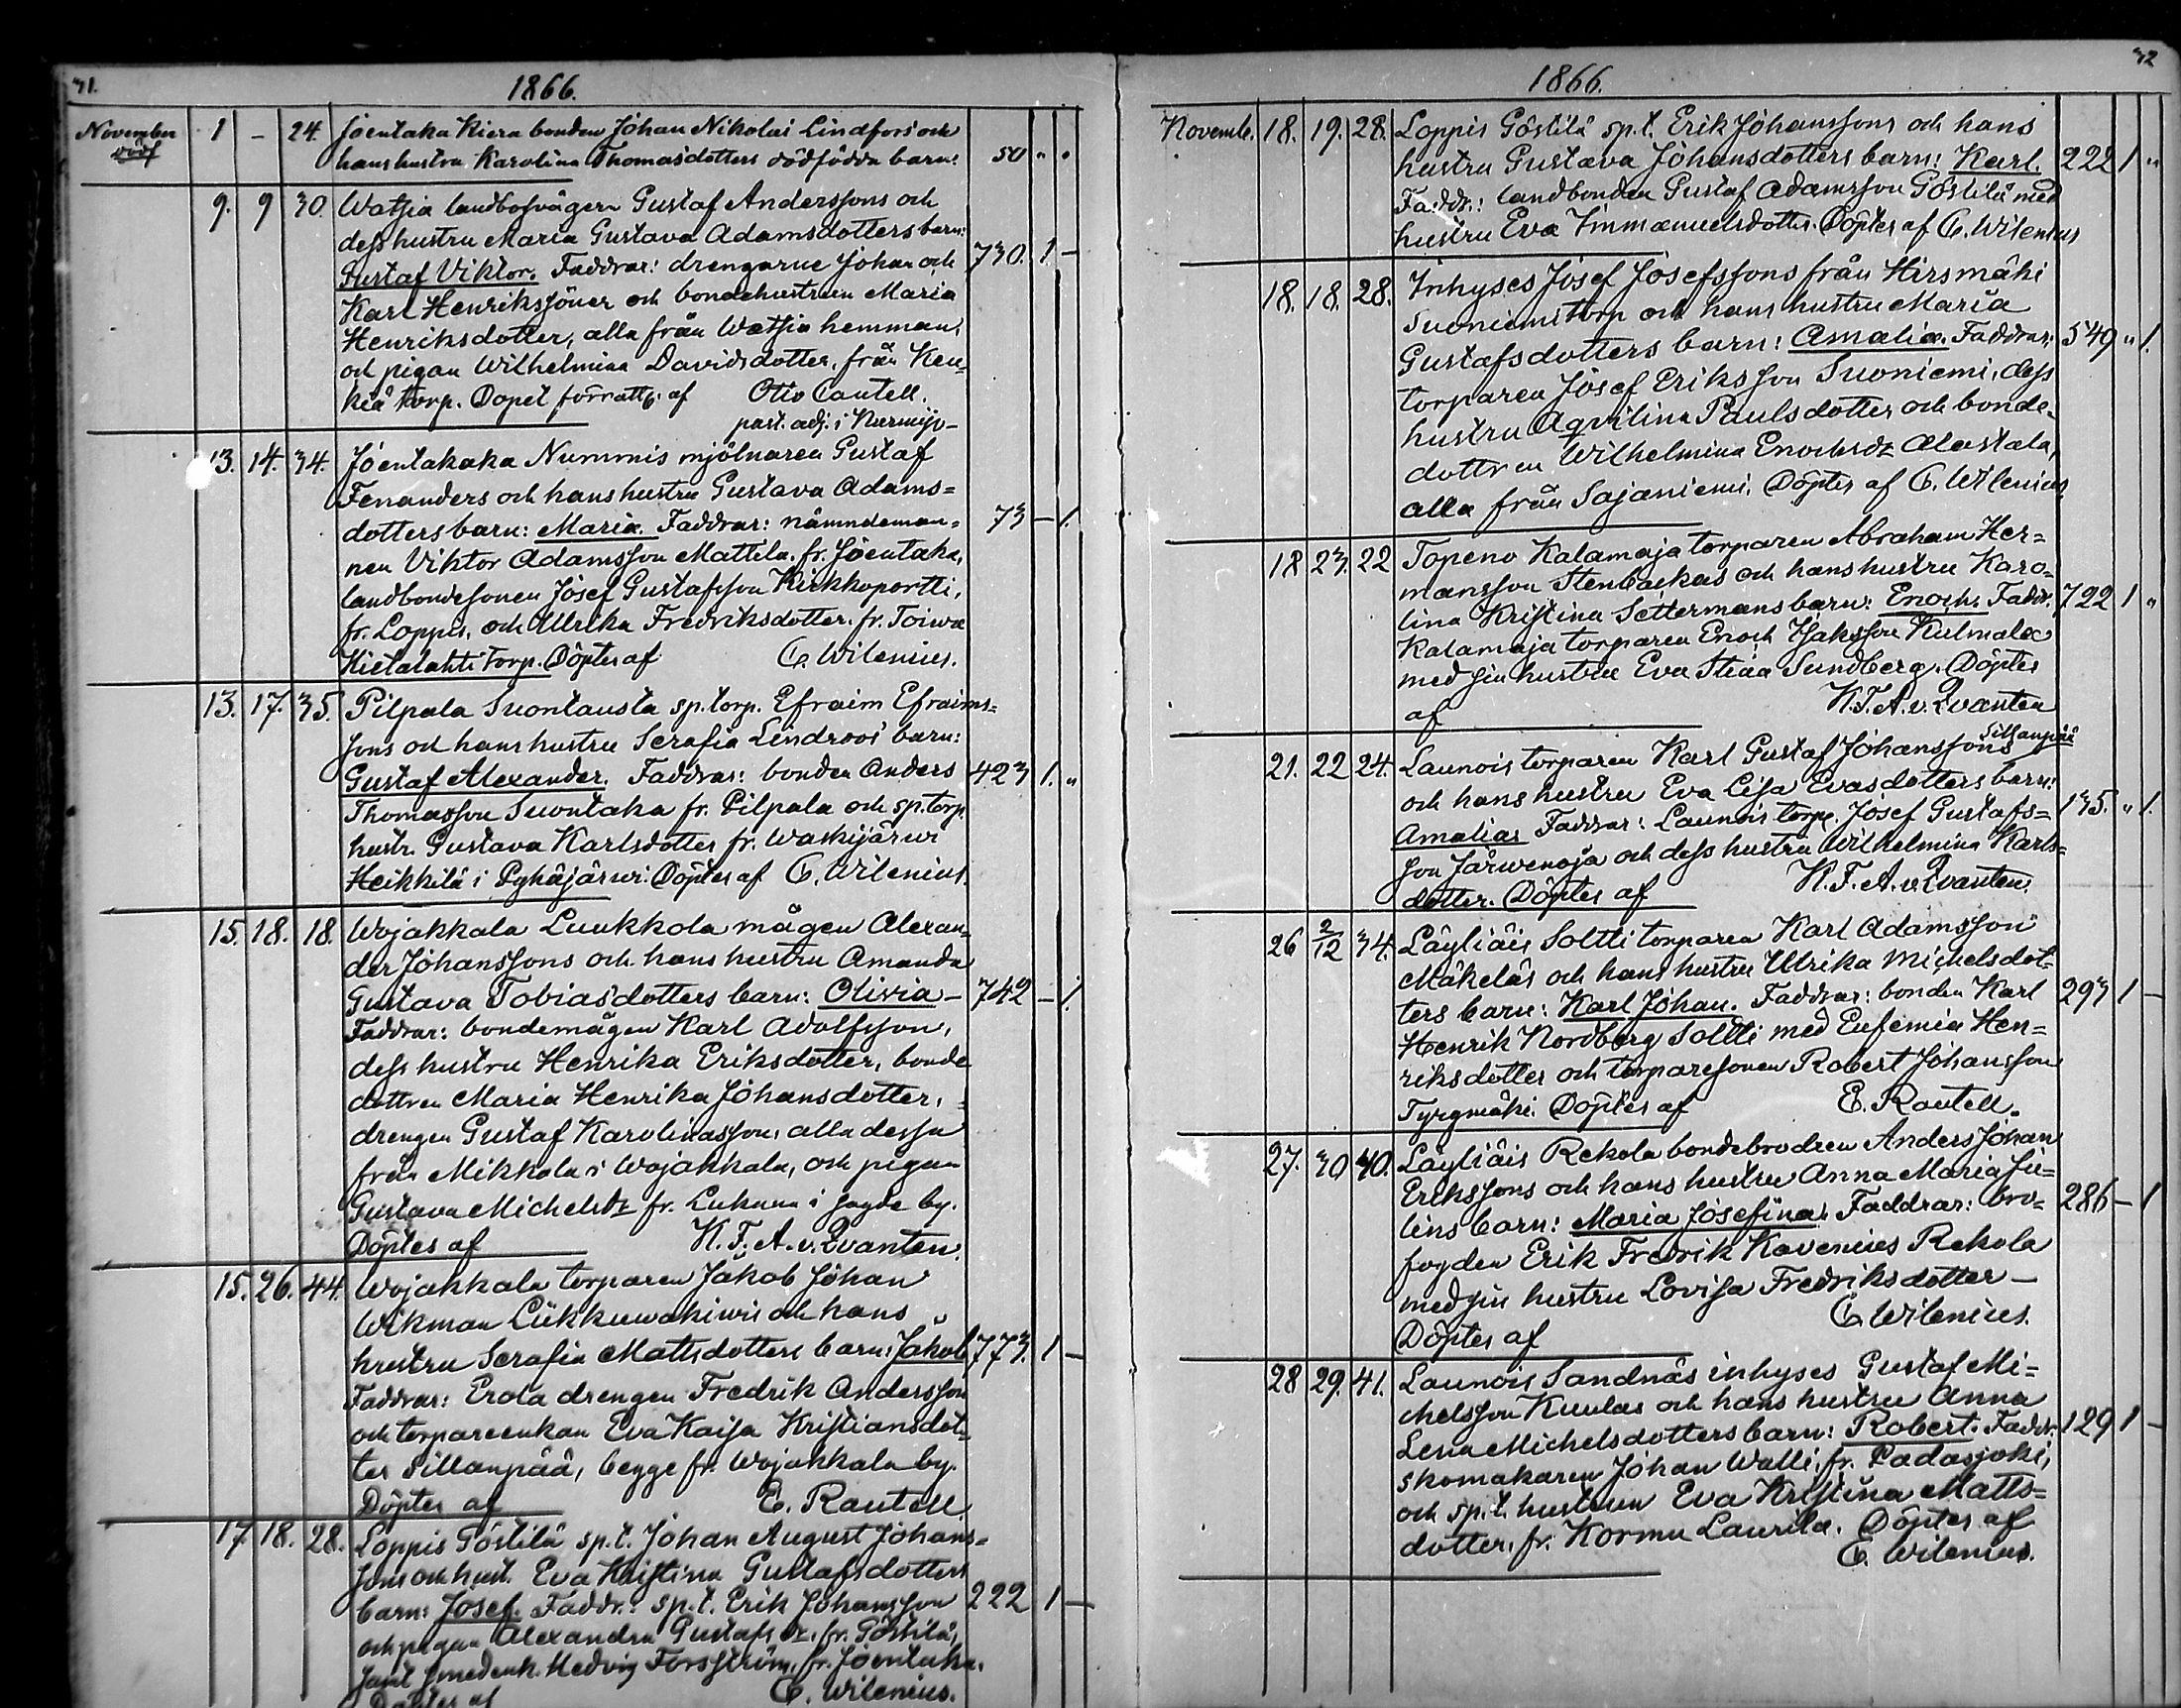 71.
1866.
November 1 – 24. Joentaka Kiera bonden Johan Nikolai Lindfors och
död hans hustru Karolina Thomasdotters dödfödda barn: 50 " .
9. 9 30. Watsia landbosvågern Gustaf Anderssons och
dess hustru Maria Gustava Adamsdotters barn:
Gustaf Viktor. Faddrar: drengarne Johan och 730. 1 –
Karl Henrikssöner och bondehustrun Maria
Henriksdotter, alla från Watsia hemman,
och pigan Wilhelmina Davidsdotter, från Keu-
kiä torp. Dopet förrätt. af Otto Cantell.
past. adj. i Nurmijv–
13. 14. 34. Joentakaka Nummis mjölnaren Gustaf
Fenanders och hans hustru Gustava Adams=
dotters barn: Maria. Faddrar: nämndeman= 73 – 1.
nen Viktor Adamsson Mattila. fr. Joentaka,
landbondesonen Josef Gustafsson Kirkkoportti,
fr. Loppis, och Ulrika Fredriksdotter. fr. Toiwa
Hietalahti torp. Döptes af C. Wilenius.
13. 17. 35. Pilpala Suontausta sp.torp. Efraim Efraims=
sons och hans hustru Serafia Lindroos' barn:
Gustaf Alexander. Faddrar: bonden Anders 423 1. "
Thomasson Suontaka fr. Pilpala och sp.torp.
hustr. Gustava Karlsdotter fr. Waskijärwi
Heikkilä i Pyhäjärwi. Döptes af C. Wilenius.
15. 18. 18. Wojakkala Luukkola mågen Alexan-
der Johanssons och hans hustru Amanda
Gustava Tobiasdotters barn: Olivia – 742 – 1.
Faddrar: bondemågen Karl Adolfsson,
dess hustru Henrika Eriksdotter, bonde
dottren Maria Henrika Johansdotter,
drengen Gustaf Karolinasson, alla dessa
från Mikkola i Wojakkala, och pigan
Gustava Michelsdr fr. Lukana i sagde by.
Döptes af K. F. A. v. Qvanten.
15. 26. 44. Wojakkala torparen Jakob Johan
Wikman Liikkuwakiwis och hans
hustru Serafia Mattsdotters barn: Jakob 773. 1 –
Faddrar: Erola drengen Fredrik Andersson
och torpareenkan Eva Kaisa Kristiansdot-
ter Sillanpää, begge fr. Wojakkala by.
Döptes af E. Rautell.
17. 18. 28. Loppis Göstilä sp.t. Johan August Johans-
sons och hust. Eva Kristina Gustafsdotters
barn: Josef. Faddr.: sp.t. Erik Johansson 222 1 –
och pigan Alexandra Gustafsdr. fr. Göstilä,
samt smedenk. Hedvig Forsström, fr. Joentaka.
Döptes af C. Wilenius.
72
1866.
Novemb. 18. 19. 28. Loppis Göstilä sp.t. Erik Johanssons och hans
hustru Gustava Johansdotters barn: Karl. 222 1 "
Faddr.: landbonden Gustaf Adamsson Göstilä med
hustru Eva Immanuelsdotter. Döptes af C. Wilenius
18. 18. 28. Inhyses Josef Josefssons från Hirsmäki
Suoniemi torp och hans hustru Maria
Gustafsdotters barn: Amalia. Faddrar: 549 " 1.
torparen Josef Eriksson Suoniemi, dess
hustru Agvilina Paulsdotter och bonde-
dottren Wilhelmina Enochsdr Alastalo,
alla från Sajaniemi. Döptes af C. Wilenius
18 23. 22 Topeno Kalamaja torparen Abraham Her=
mansson Stenbackas och hans hustru Karo-
lina Kristina Settermans barn: Enoch. Faddr. 722 1 "
Kalamaja torparen Enoch Isaksson Kulmala
med sin hustru Eva Stina Sundberg. Döptes
af K. F. A. v. Qvanten
21. 22 24. Launois torparen Karl Gustaf Johanssons Sillanpää
och hans hustru Eva Lisa Evasdotters barn:
Amalia. Faddrar: Launois torp. Josef Gustafs= 135. " 1.
son Järwenoja och dess hustru Wilhelmina Karls=
dotter. Döptes af K. F. A. v. Qvanten.
26 2/12 34. Läyliäis Soltti torparen Karl Adamsson
Mäkeläs och hans hustru Ulrika Michelsdot-
ters barn: Karl Johan. Faddrar: bonden Karl 293 1 –
Henrik Nordberg Soltti med Eufemia Hen=
riksdotter och torparesonen Robert Johansson
Tyrymäki. Döptes af E. Rautell.
27. 30 40. Läyliäis Rekola bondebrodren Anders Johan
Erikssons och hans hustru Anna Maria Ju=
lins barn: Maria Josefina. Faddrar: bro- 286 – 1
fogden Erik Fredrik Kavenius Rekola
med sin hustru Lovisa Fredriksdotter –
Döptes af C. Wilenius.
28 29. 41. Launois Sandnäs inhyses Gustaf Mi=
chelsson Kuulas och hans hustru Anna
Lena Michelsdotters barn: Robert. Faddr. 129 1 –
skomakaren Johan Walli, fr. Padasjoki,
och sp.t. hustrun Eva Kristina Matts=
dotter, fr. Kormu Laurila. Döptes af
C. Wilenius.